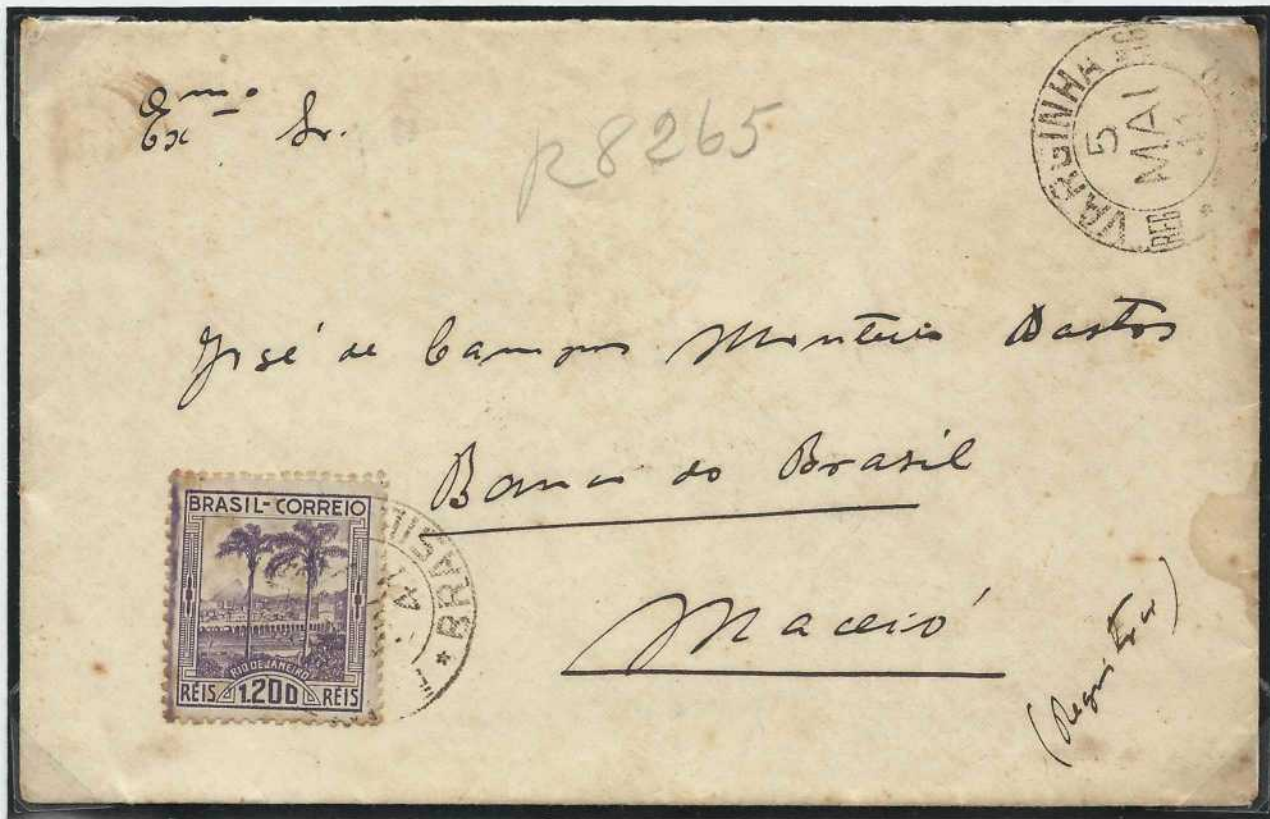 Exmo Sr.
R8265
VARGINHA
5
MAI
41
José de Campos Monteiro Bastos
Banco do Brasil
Maceió
(Registra)
BRASIL-CORREIO
RIO DE JANEIRO
RÉIS 1.200 RÉIS
BRASIL
41